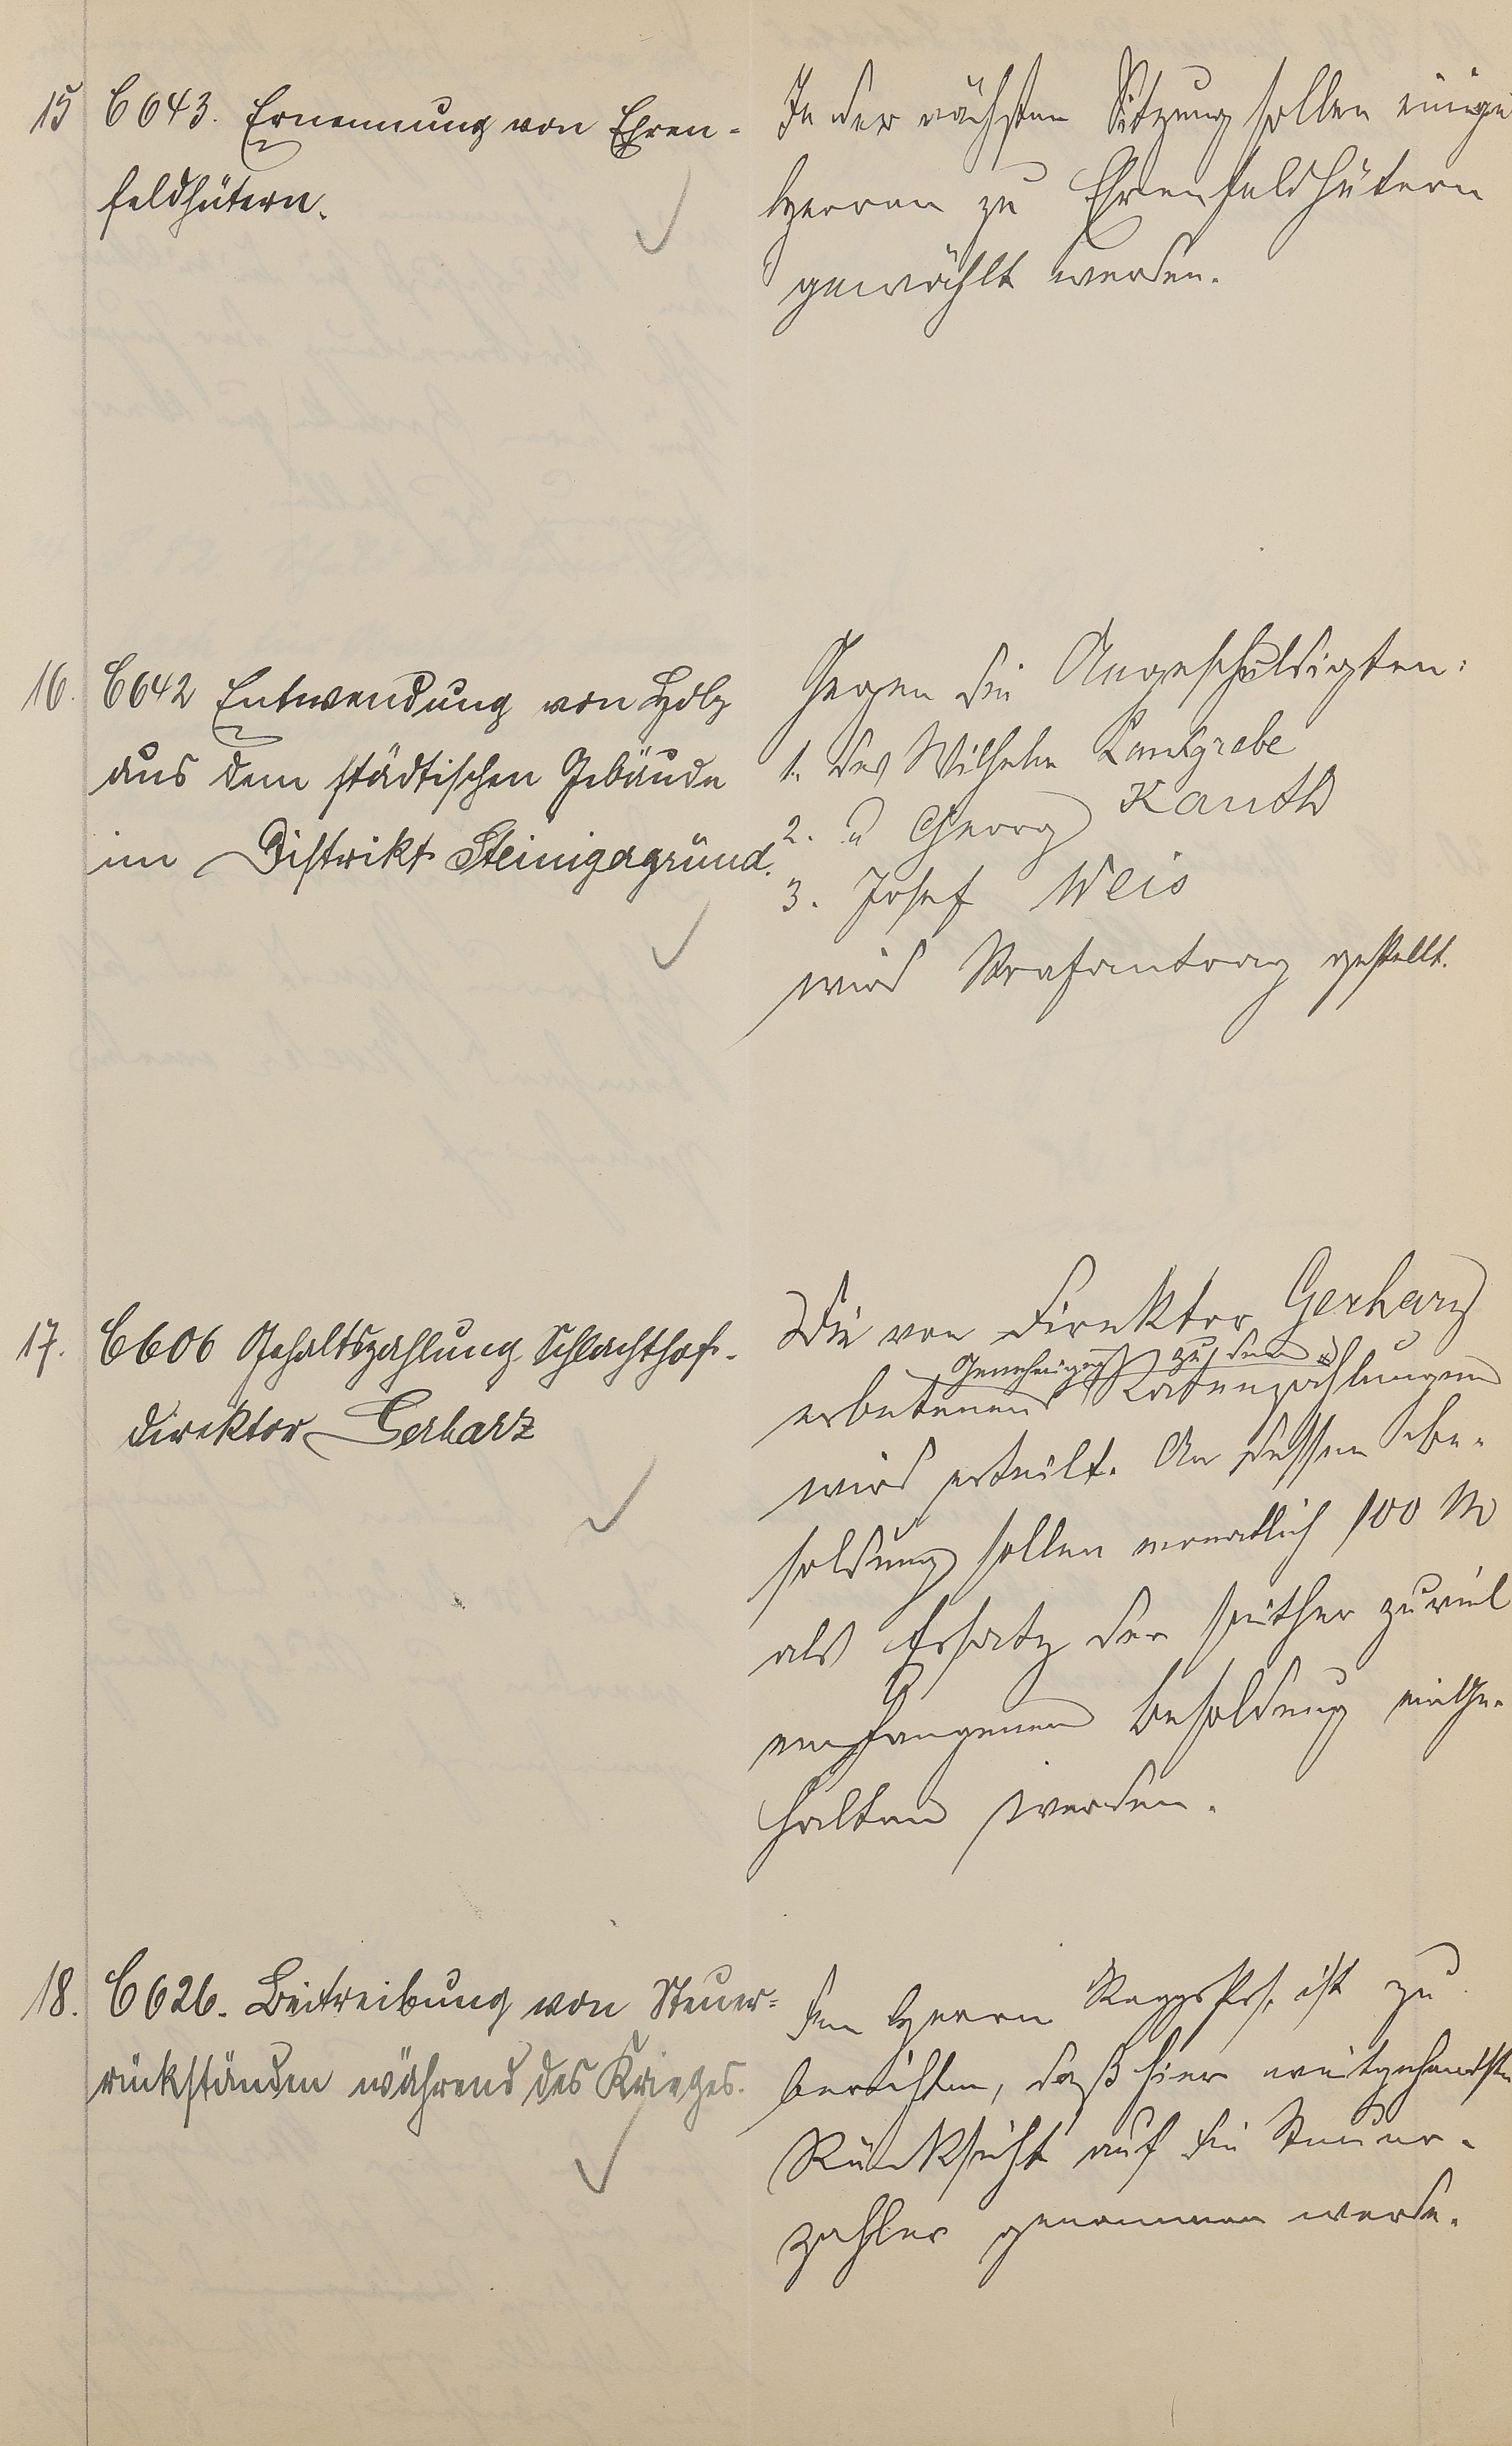 15 C 643. Ernennung von Ehren-
feldhütern.
In der nächsten Sitzung sollen einige
Herren zu Ehrenfeldhütern
gewählt werden.
16. C 642 Entwendung von Holz
aus dem städtischen Gebäude
im Distrikt Steinigergrund.
Gegen die Angeschuldigten:
1. des Wilhelm Landgrebe
2. " Georg Kauth
3. Josef Weis
wird Strafantrag gestellt.
17. C 606 Gehaltszahlung Schlachthof-
direktor Gerharz
Die von Direktor Gerharz
Genehmigung zu den
erbetenen Ratenzahlungen
wird erteilt. An dessen Be-
soldung sollen monatlich 100 M
als Ersatz der seither zuviel
empfangenen Besoldung einbe-
halten werden.
18. C 626. Beitreibung von Steuer-
rückständen während des Krieges.
Dem Herrn ReggsPrs. ist zu
berichten, daß hier weitgehendste
Rücksicht auf die Steuer-
zahler genommen werde.